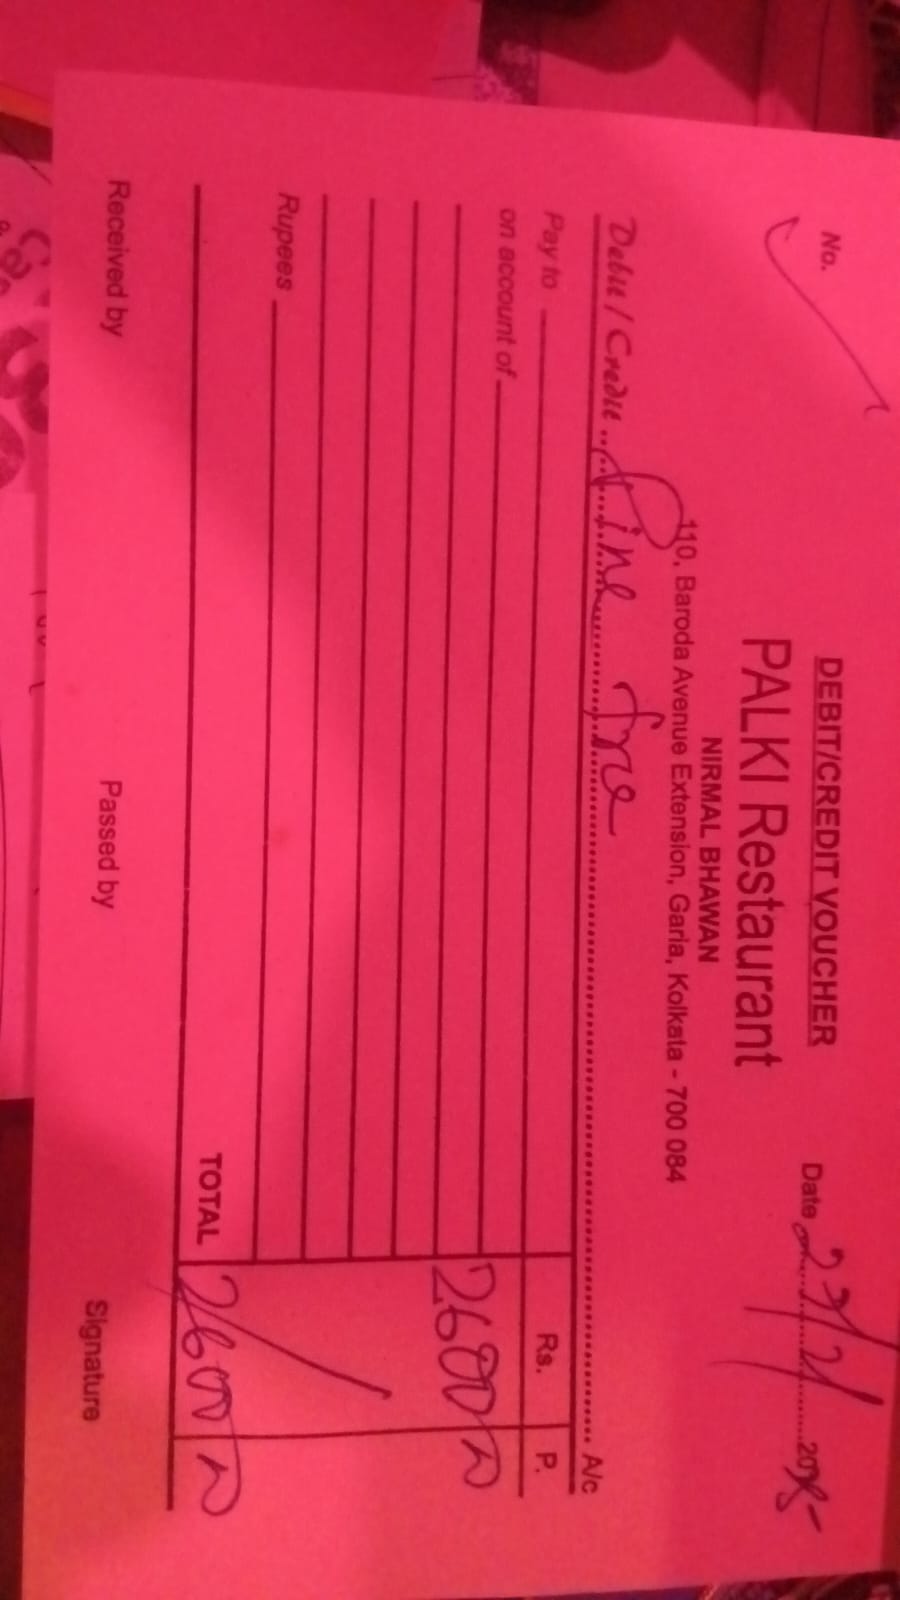 DEBIT/CREDIT VOUCHER
No.
Date 2025
PALKI Restaurant
NIRMAL BHAWAN
110, Baroda Avenue Extension, Garia, Kolkata - 700 084
Debit / Credit A/c
Pay to Rs. P.
on account of
2600
Rupees
TOTAL 2600
Received by Passed by Signature